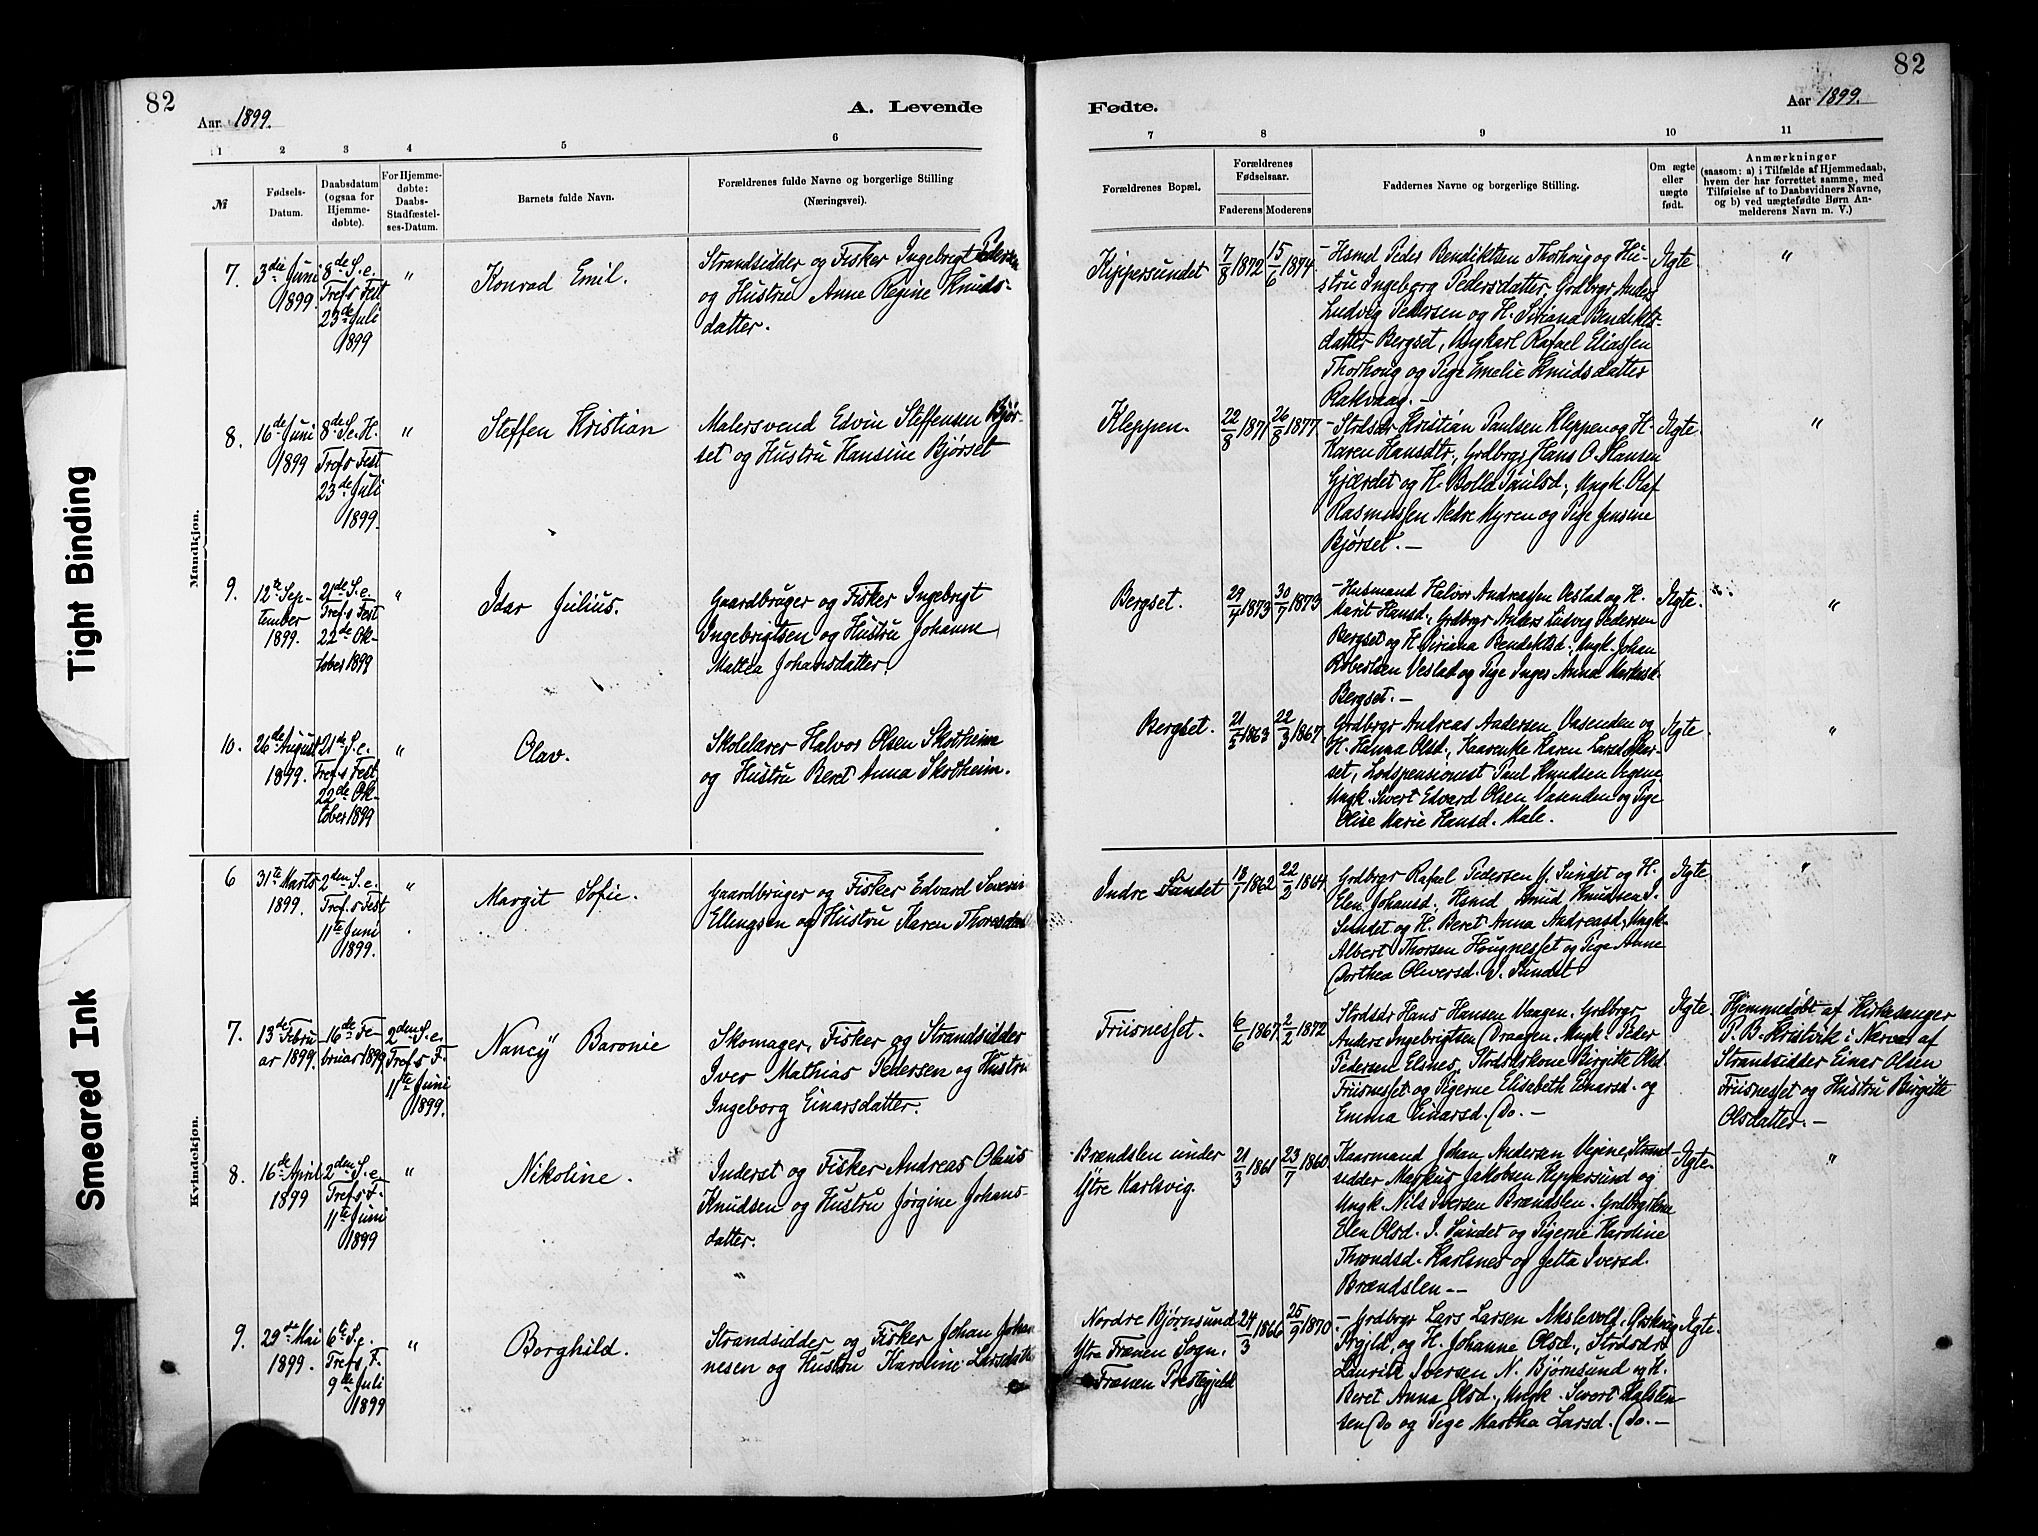 82
Aar 1899.
A. Levende
1 2 3 4 5 6
№
Fødsels-
Datum.
Daabsdatum
(ogsaa for
Hjemme-
døbte).
For Hjemme-
døbte:
Daabs-
Stadfæstel-
ses-Datum.
Barnets fulde Navn.
Forældrenes fulde Navne og borgerlige Stilling
(Næringsvei).
Mandkjøn.
7.
3die Juni
1899.
8de S. e.
Tref.s Fest
23de Juli
1899
"
Konrad Emil.
Strandsidder og Fisker Ingebrigt Pedersen
og Hustru Anne Regine Knuds-
datter.
8.
16de Juni
1899
8de S. e. H.
Tref.s Fest
23de Juli
1899.
"
Steffen Kristian
Malersvend Edvin Steffensen Bjør-
set og Hustru Hansine Bjørset
9.
12te Sep-
tember
1899.
21de S. e.
Tref.s Fest
22de Ok-
tober 1899
"
Idar Julius.
Gaardbruger og Fisker Ingebrigt
Ingebrigtsen og Hustru Johanne
Mallea Johansdatter.
10.
26de August
1899.
21de S. e.
Tref.s Fest
22de Ok-
tober 1899
"
Olav.
Skolelærer Halvor Olsen Skotheim
og Hustru Beret Anna Skotheim.
Kvindekjøn.
6
31te Marts
1899.
2den S. e.
Tref.s Fest
11te Juni
1899.
"
Margit Sofie.
Gaardbruger og Fisker Edvard Severin
Ellingsen og Hustru Karen Thoresdatter
7.
13de Febru
ar 1899.
16de Fe-
bruar 1899
2den S. e.
Tref.s F.
11te Juni
1899.
Nancy Baronie
Skomager, Fisker og Strandsidder
Iver Mathias Pedersen og Hustru
Ingeborg Einarsdatter.
8.
16de April
1899
2den S. e.
Tref.s F.
11te Juni
1899
"
Nikoline.
Inderst og Fisker Andreas Olaus
Knudsen og Hustru Jørgine Johans-
datter.
"
9.
29de Mai
1899.
6te S. e.
Tref.s F.
9de Juli
1899
"
Borghild.
Strandsidder og Fisker Johan Johan
nesen og Hustru Karoline Larsdatter
82
Fødte.
Aar 1899.
7 8 9 10 11
Forældrenes Bopæl.
Forældrenes
Fødselsaar.
Faderens Moderens
Faddernes Navne og borgerlige Stilling.
Om ægte
eller
uægte
født.
Anmærkninger
(saasom: a) i Tilfælde af Hjemmedaab,
hvem der har forrettet samme, med
Tilføielse af to Daabsvidners Navne,
og b) ved uægtefødte Børn An-
melderens Navn m. V.)
Kippersundet
7/8 1872
15/6 1874.
- Hsmd Peder Bendiktsen Thorhoug og Hu-
stru Ingeborg Pedersdatter, Grdbrgr Anders
Ludvig Pedersen og H. Siriana Bendikts-
datter Bergset, Ungkarl Rafael Eliassen
Thorhoug og Pige Emelie Knudsdatter
Rakvaag. -
Ægte
"
Kleppen.
22/8 1871
26/8 1877
- Stdsdr Kristian Paulsen Kleppen og H.
Karen Hansdtr., Grdbrgr Hans O. Hansen
Gjærdet og H. Bolla Paulsd., Ungk. Olaf
Rasmussen Nedre Myren og Pige Jensine
Bjørset. -
Ægte.
"
Bergset.
29/4 1873
30/7 1873
- Husmand Halvor Andreassen Vestad og H.
Marit Hansd., Grdbrgr Anders Ludvig Pedersen
Bergset og H. Siriana Bendiktsd., Ungk. Johan
Robertsen Vestad og Pige Inger Anna Markusd.
Bergset. -
Ægte.
"
Bergset.
21/5 1863
22/3 1867.
Grdbrgr Andreas Andersen Vasenden og
H. Hanna Olsd., Kaarenke Karen Larsd. Bar-
set, Lodspensionist Paul Knudsen Vegene
Ungk. Sivert Edvard Olsen Vasenden og Pige
Olise Marie Hansd. Male.
Ægte.
"
Indre Sundet
18/7 1862
22/2 1864
Grdbrgr Rafael Pedersen Y. Sundet og H.
Elen Johansd., Hsmd Knud Knudsen I.
Sundet og H. Beret Anna Andreasd., Ungk.
Albert Thorsen Hougnesset og Pige Anne
Dorthea Oliversd. I. Sundet
Ægte.
"
Friisnesset.
6/6 1867.
2/2 1872
Stdsdr Hans Hansen Vaagen. Grdbrgr.
Anders Ingebrigtsen Draagen. Ungk. Peder
Pedersen Elsnes, Stdsdrskone Birgitte Olsd.
Friisnesset og Pigerne Elisabeth Einarsd. og
Emma Einarsd. Do. -
Ægte.
Hjemmedøbt af Kirkesanger
P. B. Kristvik i Nærvær af
Strandsidder Einar Olsen
Friisnesset og Hustru Birgitte
Olsdatter. -
Brændslen under
Ytre Karlsvig.
21/3 1861
23/7 1860
Kaarmand Johan Andersen Vegene, Strand-
sidder Markus Jakobsen Kippersund og
Ungk. Nils Iversen Brændslen. Grdbrgrskone
Elen Olsd. I. Sundet og Pigerne Karoline
Throndsd. Karlsnes og Jetta Iversd.
Brændslen --
Ægte-
"
Nordre Bjørnsund
Ytre Frænen Sogn.
Frænen Prestegjeld
24/3 1866
25/9 1870.
- Grdbrgr Lars Larsen Akslevold,
Prgjld, og H. Johanne Olsd., Stdsdr
Laurits Iversen N. Bjørnsund og H.
Beret Anna Olsd., Ungk. Sivert Halsten
sen Do og Pige Martha Larsd. Do. -
Ægte.
Tight Binding
Smeared Ink